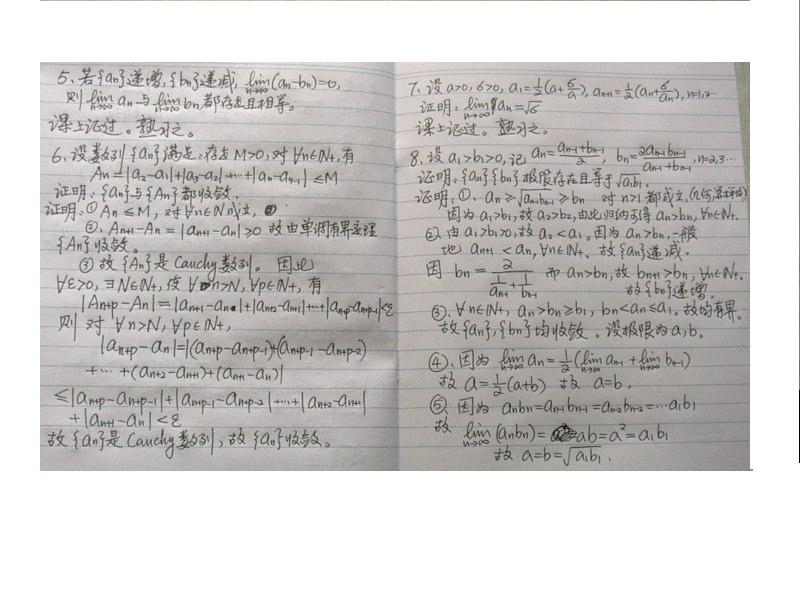 5、若{an}递增,{bn}递减, lim n→∞ (an-bn)=0,
则 lim n→∞ an 与 lim n→∞ bn 都存在且相等。
课上证过。熟习之。
6、设数列{an}满足:存在M>0,对∀n∈N+,有
An=|a2-a1|+|a3-a2|+…+|an-an-1|≤M
证明:{an}与{An}都收敛.
证明:① An≤M,对∀n∈N成立,
②. An+1-An=|an+1-an|≥0 故由单调有界定理
{An}收敛。
③ 故{An}是Cauchy数列。因此
∀ε>0,∃N∈N+,使∀n>N,∀p∈N+,有
|An+p-An|=|an+1-an|+|an+2-an+1|+…+|an+p-an+p-1|<ε
则 对∀n>N,∀p∈N+,
|an+p-an|=|(an+p-an+p-1)+(an+p-1-an+p-2)
+…+(an+2-an+1)+(an+1-an)|
≤|an+p-an+p-1|+|an+p-1-an+p-2|+…+|an+2-an+1|
+|an+1-an|<ε
故{an}是Cauchy数列,故{an}收敛。
7、设a>0,b>0, a1=½(a+b/a), an+1=½(an+b/an), n=1,2…
证明: lim n→∞ an=√b
课上证过。熟习之。
8、设a1>b1>0,记 an=(an-1+bn-1)/2, bn=2an-1bn-1/(an-1+bn-1), n=2,3…
证明:{an}{bn}极限存在且等于√a1b1.
证明:①. an≥√an-1bn-1≥bn 对n>1都成立,
因为a1>b1,故a2>b2,由此归纳可得an>bn,∀n∈N+.
②由a1>b1>0,故a2<a1。因为an>bn,一般
地 an+1<an,∀n∈N+. 故{an}递减.
因 bn=2/(1/an-1+1/bn-1) 而an>bn,故bn+1>bn,∀n∈N+.
故{bn}递增.
③、∀n∈N+, an>bn≥b1, bn<an≤a1。故均有界。
故{an},{bn}均收敛。设极限为a,b。
④、因为 lim n→∞ an=½(lim n→∞ an-1+lim n→∞ bn-1)
故 a=½(a+b) 故 a=b.
⑤ 因为 anbn=an-1bn-1=an-2bn-2=…a1b1
故 lim n→∞ (anbn)=ab=a²=a1b1
故 a=b=√a1b1.